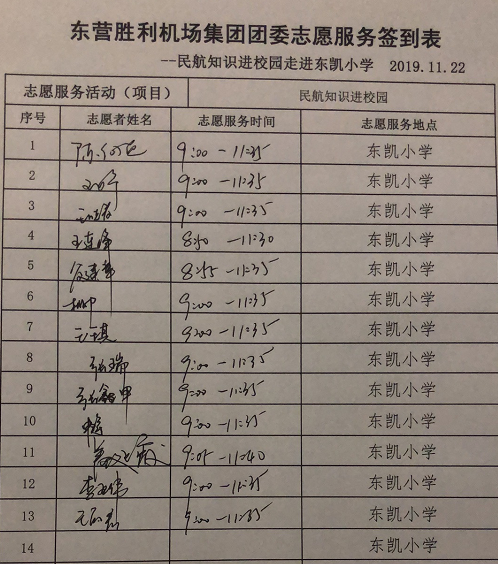 东营胜利机场集团团委志愿服务签到表
--民航知识进校园走进东凯小学 2019.11.22
志愿服务活动（项目） 民航知识进校园
序号 志愿者姓名 志愿服务时间 志愿服务地点
1 9:00-11:35 东凯小学
2 9:00-11:35 东凯小学
3 9:00-11:35 东凯小学
4 8:50-11:30 东凯小学
5 8:55-11:35 东凯小学
6 9:00-11:35 东凯小学
7 9:00-11:35 东凯小学
8 张瑞 9:00-11:35 东凯小学
9 9:00-11:35 东凯小学
10 9:00-11:35 东凯小学
11 9:05-11:40 东凯小学
12 9:00-11:35 东凯小学
13 9:00-11:35 东凯小学
14 东凯小学